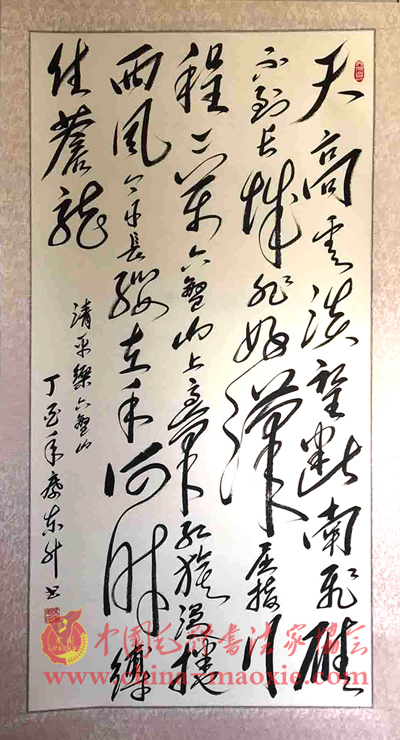 天高雲淡望断南飛雁
不到长城非好漢屈指行
程二万六盤山上高峰红旗漫捲
西風今日長纓在手何时缚
住蒼龍
清平樂六盤山
丁酉年廖东升书
中国毛體書法家協会
www.china-maoxie.com